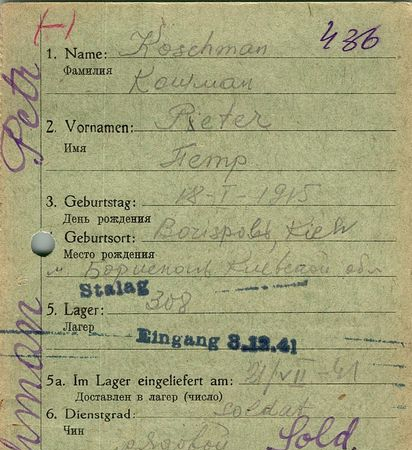 436
1. Name: Koschman
Фамилия Кошман
2. Vornamen: Pieter
Имя
Петр
3. Geburtstag: 18-I-1915
День рождения
Geburtsort: Borispolь, Kiew
Место рождения
м. Борисполь Киевской обл
Stalag
5. Lager: 308
Лагерь
Eingang 3.12.41
5a. Im Lager eingeliefert am: 21/VII-41
Доставлен в лагерь (число)
6. Dienstgrad: soldat
Чин рядовой Sold.
Petr